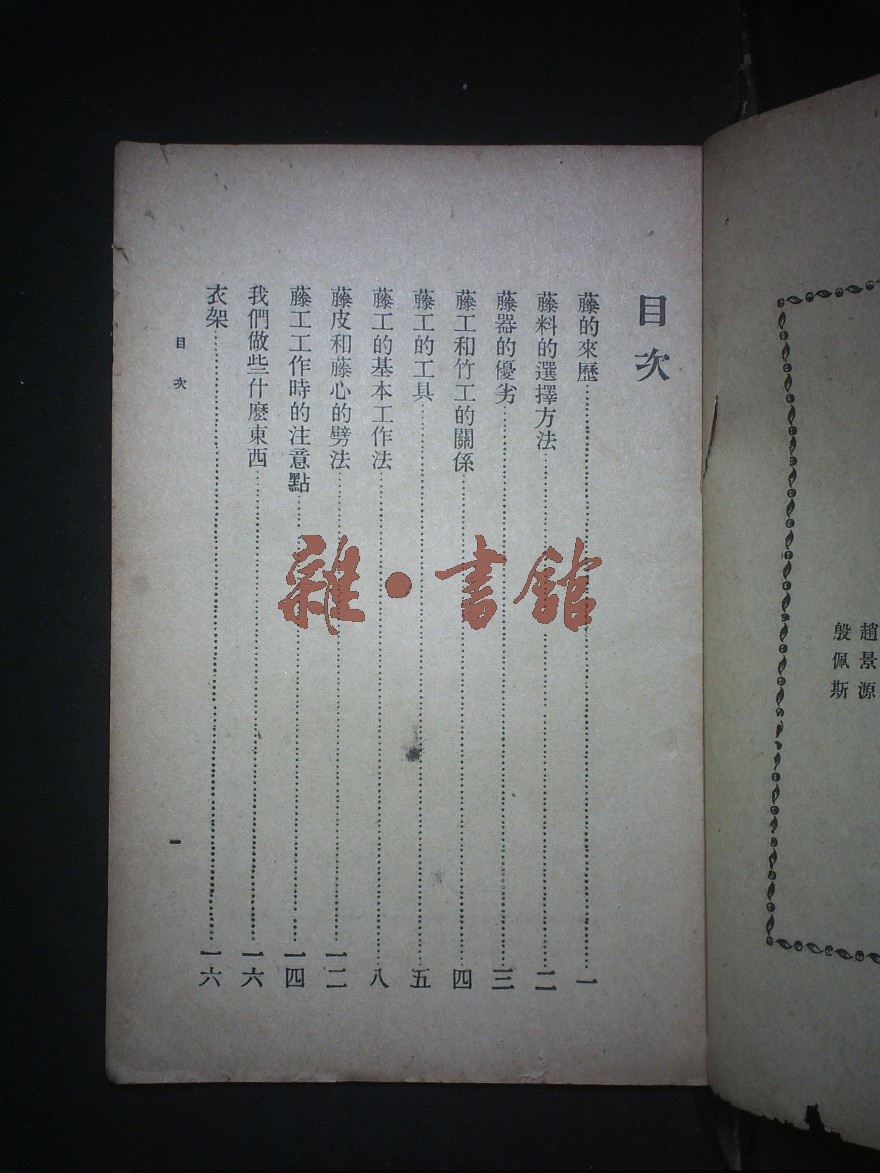 趙景源
殷佩斯
目次
藤的來歷……一
藤料的選擇方法……二
藤器的優劣……三
藤工和竹工的關係……四
藤工的工具……五
藤工的基本工作法……八
藤皮和藤心的劈法……一二
藤工工作時的注意點……一四
我們做些什麼東西……一六
衣架……一六
目次
一
雜·書館